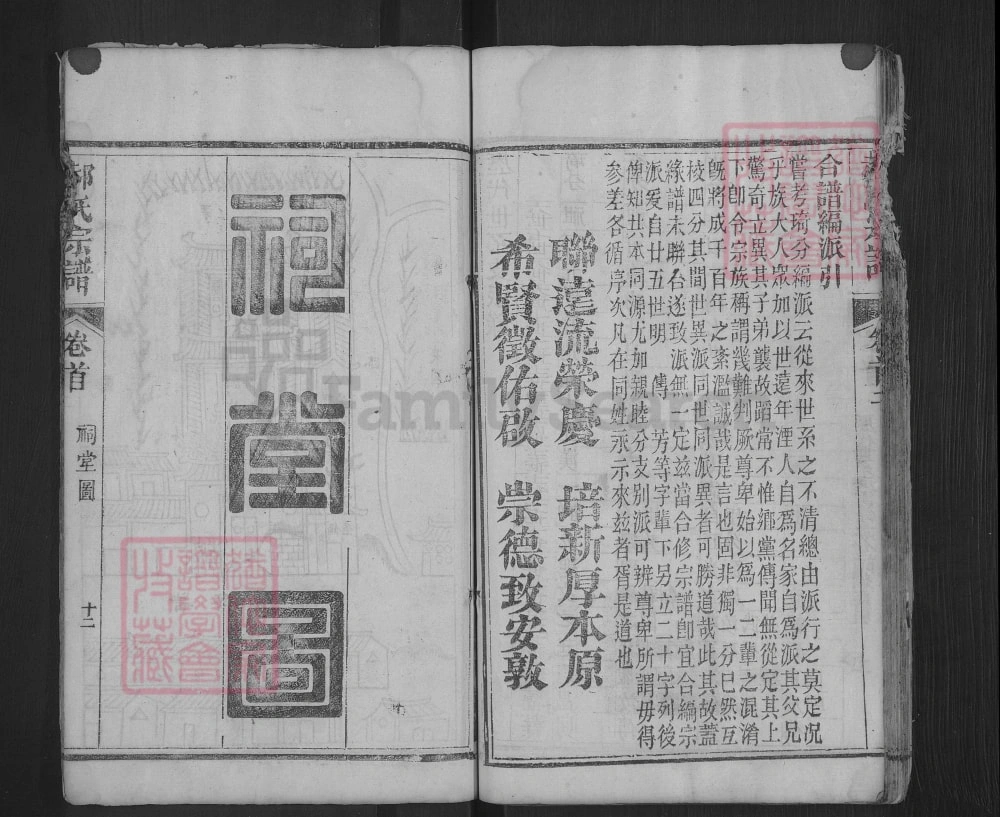 合譜編派引
嘗考琦分編派云從來世系之不清總由派行之莫定况
乎族大人眾加以世遠年湮人自為名家自為派其父兄
驚奇立異其子弟襲故蹈常不惟鄉黨傳聞無從定其上
下即令宗族稱謂幾難判厥尊卑始以為一二輩之混淆
既將成千百年之紊濫誠哉是言也固非獨一分巳然互
校四分其間世異派同世同派異者可勝道哉此其故蓋
緣譜未聯合遂致派無一定兹當合修宗譜即宜合編宗
派爰自廿五世明 傳 芳等字輩下另立二十字列後
俾知共本同源尤加親睦分支別派可辨尊卑所謂毋得
參差各循序次凡在同姓永示來兹者胥是道也
聯達流榮慶 培新厚本原
希賢徵佑啟 崇德致安敦
祠堂圖
氏宗譜
卷首
祠堂圖
十二